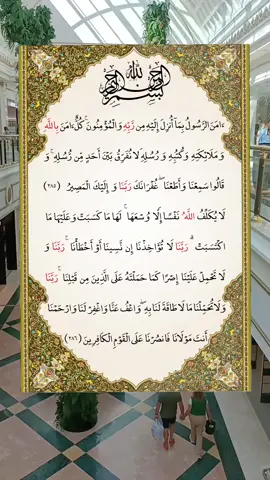 بسم الله الرحمن الرحيم
ءَامَنَ الرَّسُولُ بِمَا أُنزِلَ إِلَيْهِ مِن رَّبِّهِ وَالْمُؤْمِنُونَ ۚ كُلٌّ ءَامَنَ بِاللَّهِ
وَمَلَائِكَتِهِ وَكُتُبِهِ وَرُسُلِهِ لَا نُفَرِّقُ بَيْنَ أَحَدٍ مِّن رُّسُلِهِ ۚ وَ
قَالُوا سَمِعْنَا وَأَطَعْنَا ۖ غُفْرَانَكَ رَبَّنَا وَإِلَيْكَ الْمَصِيرُ (٢٨٥)
لَا يُكَلِّفُ اللَّهُ نَفْسًا إِلَّا وُسْعَهَا ۚ لَهَا مَا كَسَبَتْ وَعَلَيْهَا مَا
اكْتَسَبَتْ ۗ رَبَّنَا لَا تُؤَاخِذْنَا إِن نَّسِينَا أَوْ أَخْطَأْنَا ۚ رَبَّنَا وَ
لَا تَحْمِلْ عَلَيْنَا إِصْرًا كَمَا حَمَلْتَهُ عَلَى الَّذِينَ مِن قَبْلِنَا ۚ رَبَّنَا
وَلَا تُحَمِّلْنَا مَا لَا طَاقَةَ لَنَا بِهِ ۖ وَاعْفُ عَنَّا وَاغْفِرْ لَنَا وَارْحَمْنَا
أَنتَ مَوْلَانَا فَانصُرْنَا عَلَى الْقَوْمِ الْكَافِرِينَ (٢٨٦)